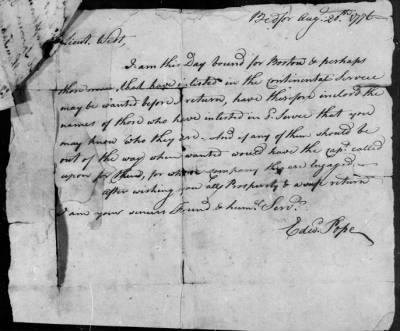 Bedfor Augt. 20th. 1776
Lieut. West,
I am this Day bound for Boston & perhaps
those men that have inlisted in the Continental Service
may be wanted before I return, have therefore inclosd the
names of those who have inlisted in Sd. Service that you
may know who they are - And if any of them should be
out of the way when wanted would have the Capt. called
upon for them, for whose company they are Engaged -
after wishing you all Prosperity & a safe return
I am your sincere Friend & humle. Servt.
Edwd. Pope